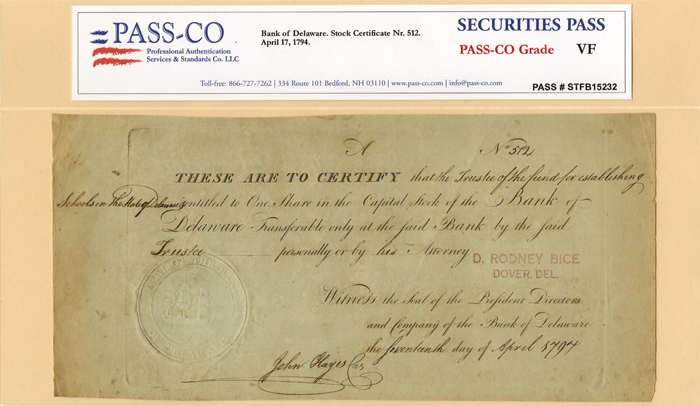 PASS-CO
Professional Authentication
Services & Standards Co. LLC
Bank of Delaware. Stock Certificate Nr. 512.
April 17, 1794.
SECURITIES PASS
PASS-CO Grade VF
Toll-free: 866-727-7262 | 334 Route 101 Bedford, NH 03110 | www.pass-co.com | info@pass-co.com
PASS # STFB15232
A No. 512
THESE ARE TO CERTIFY that the Trustee of the fund for establishing
Schools in The State of Delaware is entitled to One Share in the Capital Stock of the Bank of
Delaware Transferable only at the said Bank by the said
Trustee personally or by his Attorney
D. RODNEY BICE
DOVER, DEL.
Witness the Seal of the President Directors
and Company of the Bank of Delaware
the seventeenth day of April 1794
John Hayes Cas